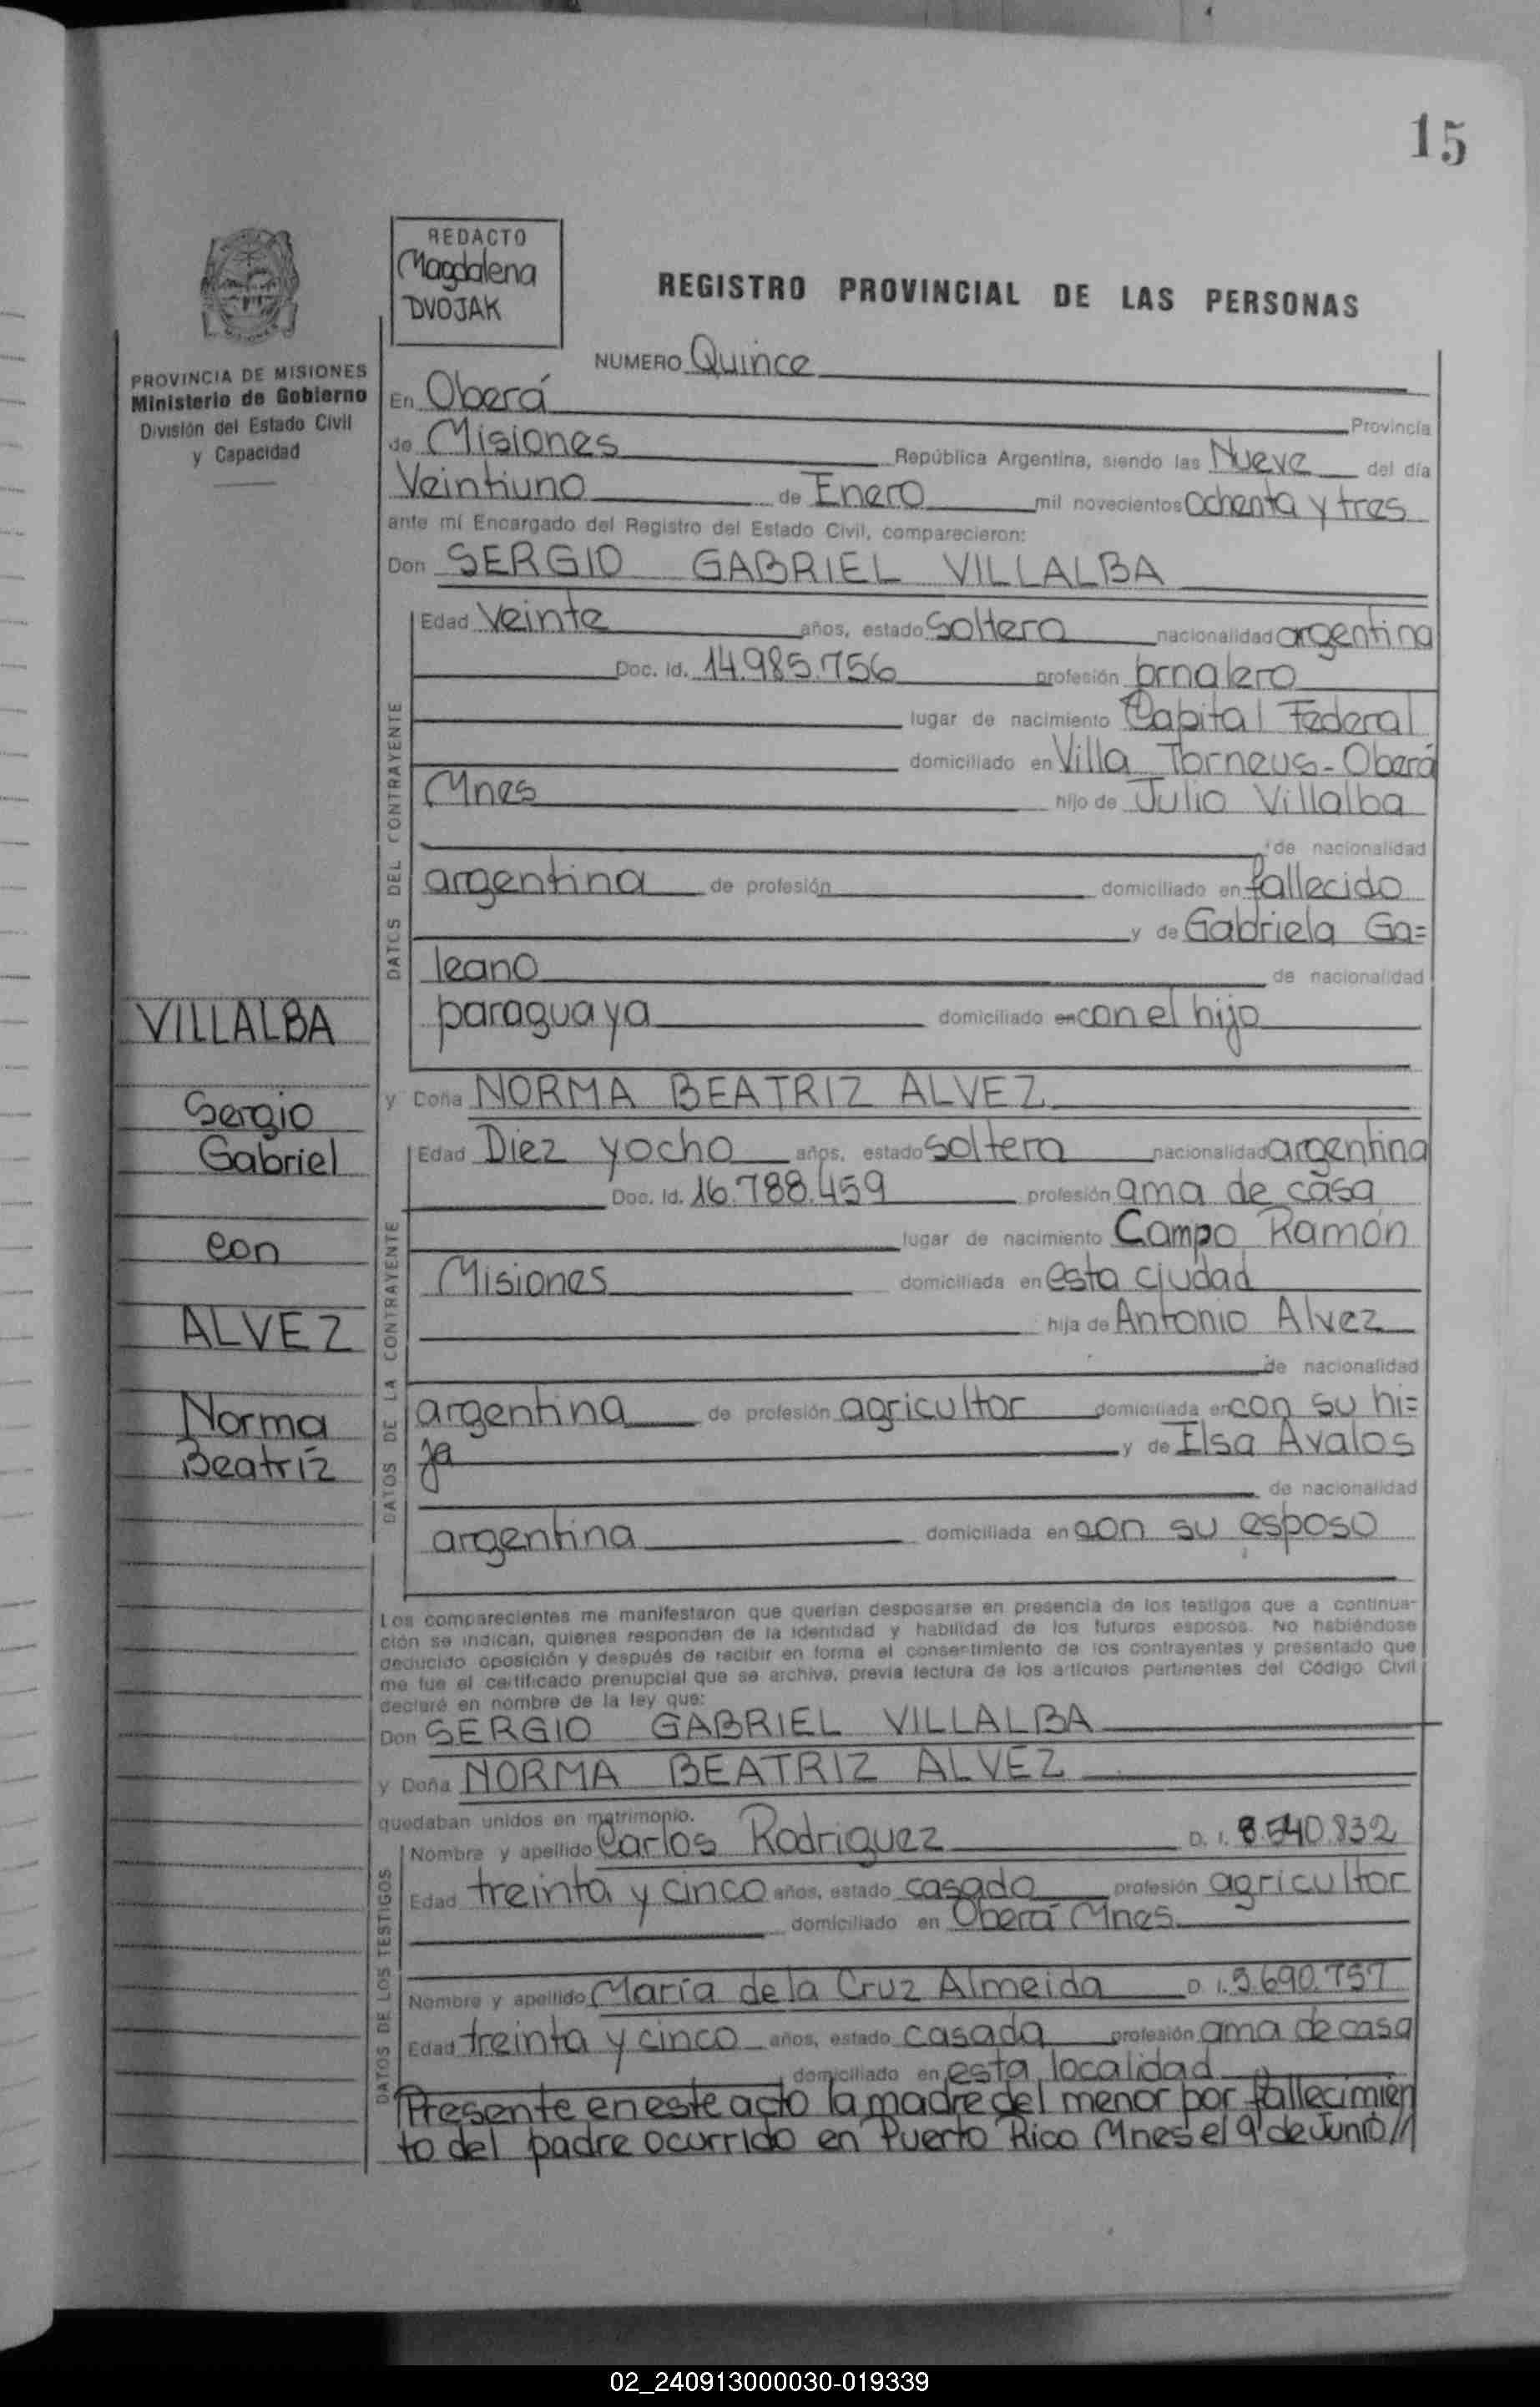 15
REDACTO
Magdalena
DVOJAK
REGISTRO PROVINCIAL DE LAS PERSONAS
PROVINCIA DE MISIONES
Ministerio de Gobierno
División del Estado Civil
y Capacidad
NUMERO Quince
En Oberá Provincia
de Misiones República Argentina, siendo las Nueve del día
Veintiuno de Enero mil novecientos Ochenta y tres
ante mí Encargado del Registro del Estado Civil, comparecieron:
Don SERGIO GABRIEL VILLALBA
DATOS DEL CONTRAYENTE
Edad Veinte años, estado Soltero nacionalidad argentina
Doc. Id. 14.985.756 profesión Jornalero
lugar de nacimiento Capital Federal
domiciliado en Villa Torneus - Oberá
Mnes hijo de Julio Villalba
de nacionalidad
argentina de profesión domiciliado en fallecido
y de Gabriela Ga=
leano de nacionalidad
paraguaya domiciliado en con el hijo
y Doña NORMA BEATRIZ ALVEZ
DATOS DE LA CONTRAYENTE
Edad Diez y ocho años, estado Soltera nacionalidad argentina
Doc. Id. 16.788.459 profesión ama de casa
lugar de nacimiento Campo Ramón
Misiones domiciliada en esta ciudad
hija de Antonio Alvez
de nacionalidad
argentina de profesión agricultor domiciliada en con su hi=
ja y de Elsa Avalos
de nacionalidad
argentina domiciliada en con su esposo
VILLALBA
Sergio
Gabriel
con
ALVEZ
Norma
Beatríz
Los comparecientes me manifestaron que querían desposarse en presencia de los testigos que a continua-
ción se indican, quienes responden de la identidad y habilidad de los futuros esposos. No habiéndose
deducido oposición y después de recibir en forma el consentimiento de los contrayentes y presentado que
me fue el certificado prenupcial que se archiva, previa lectura de los artículos pertinentes del Código Civil
declaré en nombre de la ley que:
Don SERGIO GABRIEL VILLALBA
y Doña NORMA BEATRIZ ALVEZ
quedaban unidos en matrimonio.
DATOS DE LOS TESTIGOS
Nombre y apellido Carlos Rodriguez D. I. 8.540.832
Edad treinta y cinco años, estado casado profesión agricultor
domiciliado en Oberá Mnes
Nombre y apellido María de la Cruz Almeida D. I. 5.690.757
Edad treinta y cinco años, estado casada profesión ama de casa
domiciliado en esta localidad
Presente en este acto la madre del menor por fallecimien
to del padre ocurrido en Puerto Rico Mnes el 9 de Junio //
02_240913000030-019339